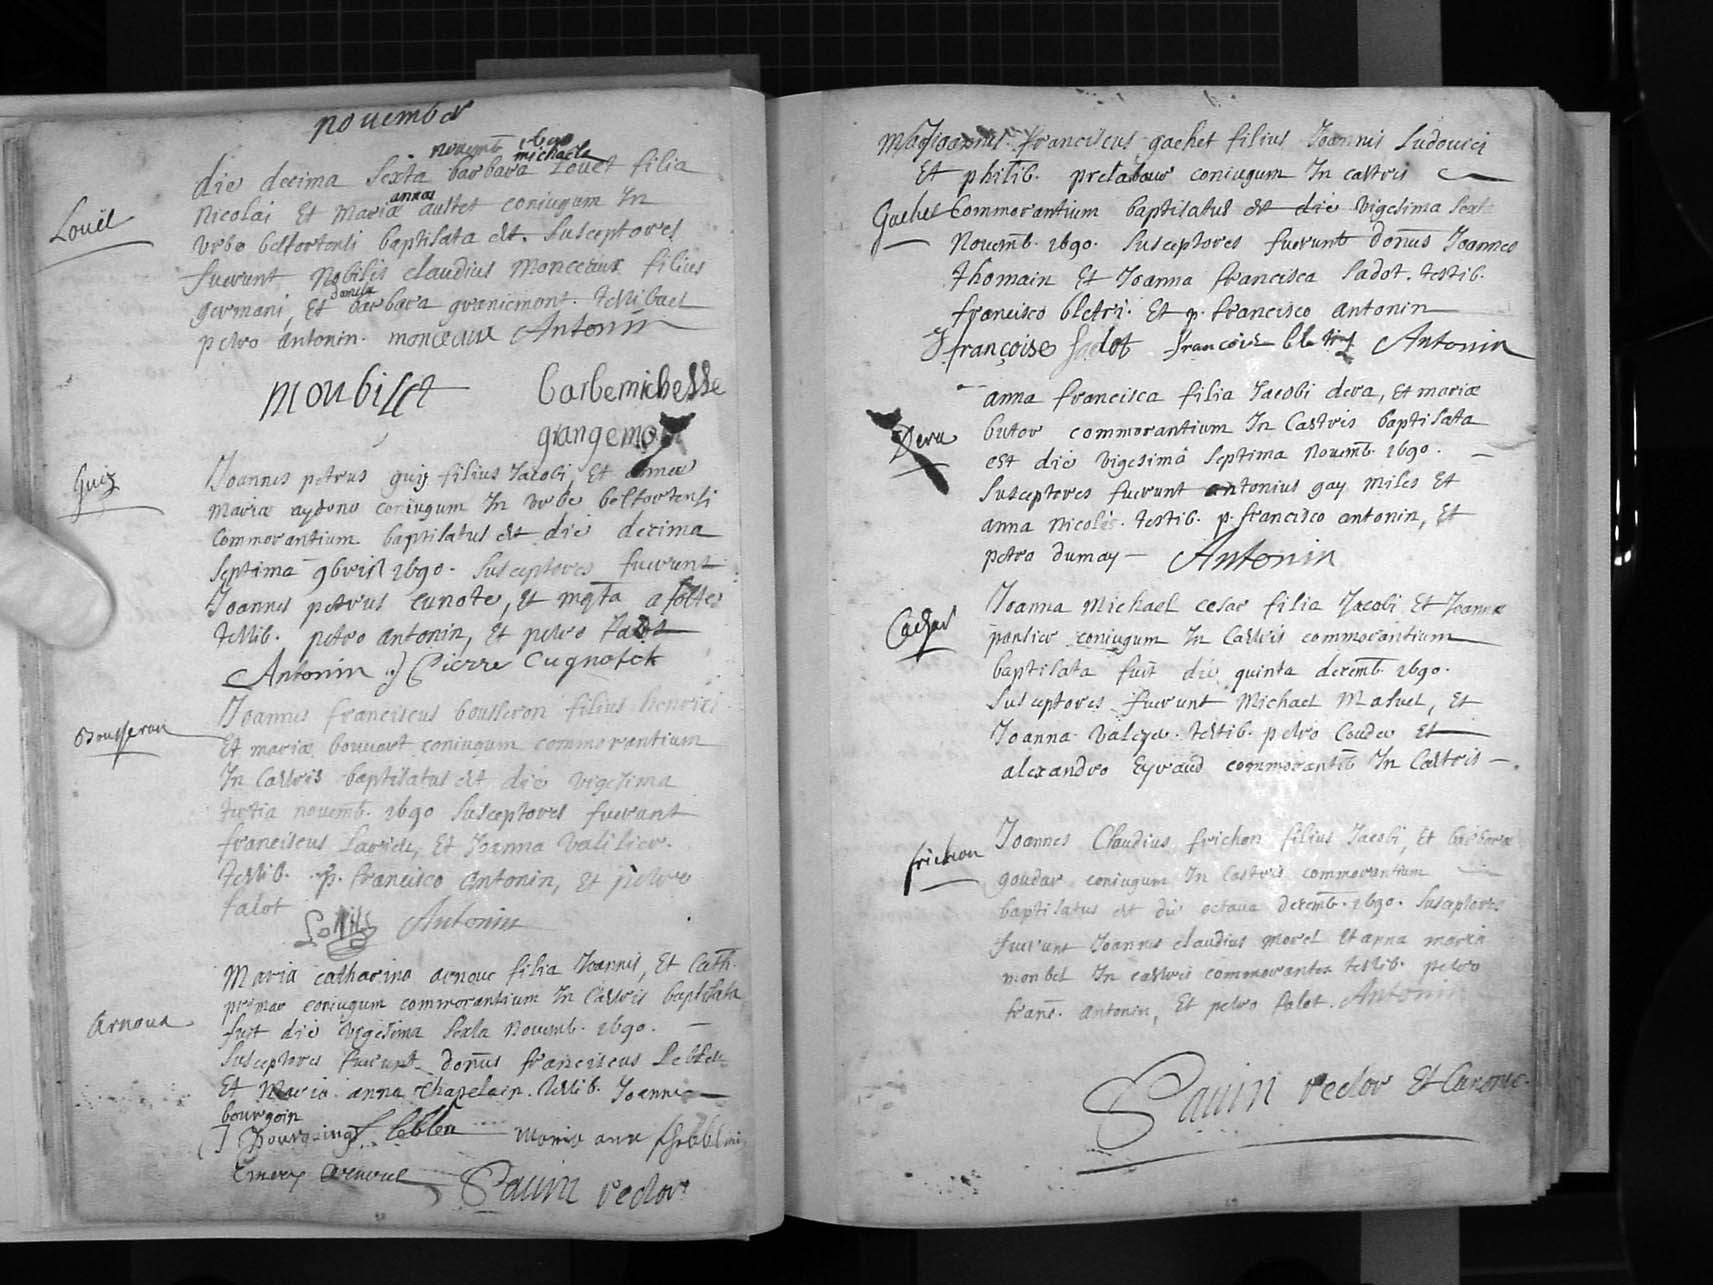 november
novemb̄ 1690
michaela
die decima sexta barbara Louet filia
Louël
Nicolai Et Mariæ annæ austet coniugum In
Vrbe belfortensi baptisata est. Susceptores
fuerunt Nobilis claudius Monceaux filius
germani, Et barbara granicmont. testibus
petro antonin. monceaux Antonin
monbiset barbe michelle
grangemon
Joannes petrus guij filius Jacobi, Et annæ
Guij
Mariæ aydono coniugum In vrbe belfortensi
Commorantium baptisatus est die decima
septima 9bris 1690. Susceptores fuerunt
Joannes petrus cunote, Et
testib. petro antonin, Et petro talot
Antonin Pierre Cugnotet
Joannes franciscus bousseron filius henrici
Bousseron
Et mariæ bouuart coniugum commorantium
In Castris baptisatus est die vigesima
tertia novemb. 1690 Susceptores fuerunt
franciscus Laride, Et Joanna Valilier.
testib. p. francisco Antonin, Et petro
talot
Antonin
Maria catharina arnoux filia Joannis, Et Cath.
primar coniugum commorantium In Castris baptisata
Arnoux
fuit die vigesima sexta Novemb. 1690.
Susceptores fuerunt donūs franciscus Lebleu
Et Maria anna Chapelain. testib. Joanne
bourgoin
J Bourgoing f lebleu Maria ane
Emery Arnoux Sauin rector
franciscus gachet filius Joannis Ludouici
Et philib. prelabour coniugum In castris
Gachet Commorantium baptisatus est die vigesima sexta
Novemb. 1690. Susceptores fuerunt donūs Joannes
thomain Et Joanna francisca Sadot. testib.
francisco bletri. Et p. francisco antonin
J françoise sadot francois bletry Antonin
anna francisca filia Jacobi dera, Et mariæ
Dera
butor commorantium In Castris baptisata
est die vigesima septima novemb. 1690.
Susceptores fuerunt antonius gay miles Et
anna Nicoles. testib. p. francisco antonin, Et
petro dumay Antonin
Joanna Michael cesar filia Jacobi Et Joannæ
Caesar
pansier coniugum In Castris commorantium
baptisata fuit die quinta decemb. 1690.
Susceptores fuerunt Michael Mahuet, Et
Joanna Valeye. testib. petro Coude Et
alexandro Eyraud commorantib In Castris
Joannes Claudius frichon filius Jacobi, Et barbaræ
frichon
goudar coniugum In Castris commorantium
baptisatus est die octaua decemb. 1690. Susceptores
fuerunt Joannes claudius morel Et anna maria
monbel In castris commorantes testib. petro
franc. antonin, Et petro talot. Antonin
Sauin rector Et Canonic.